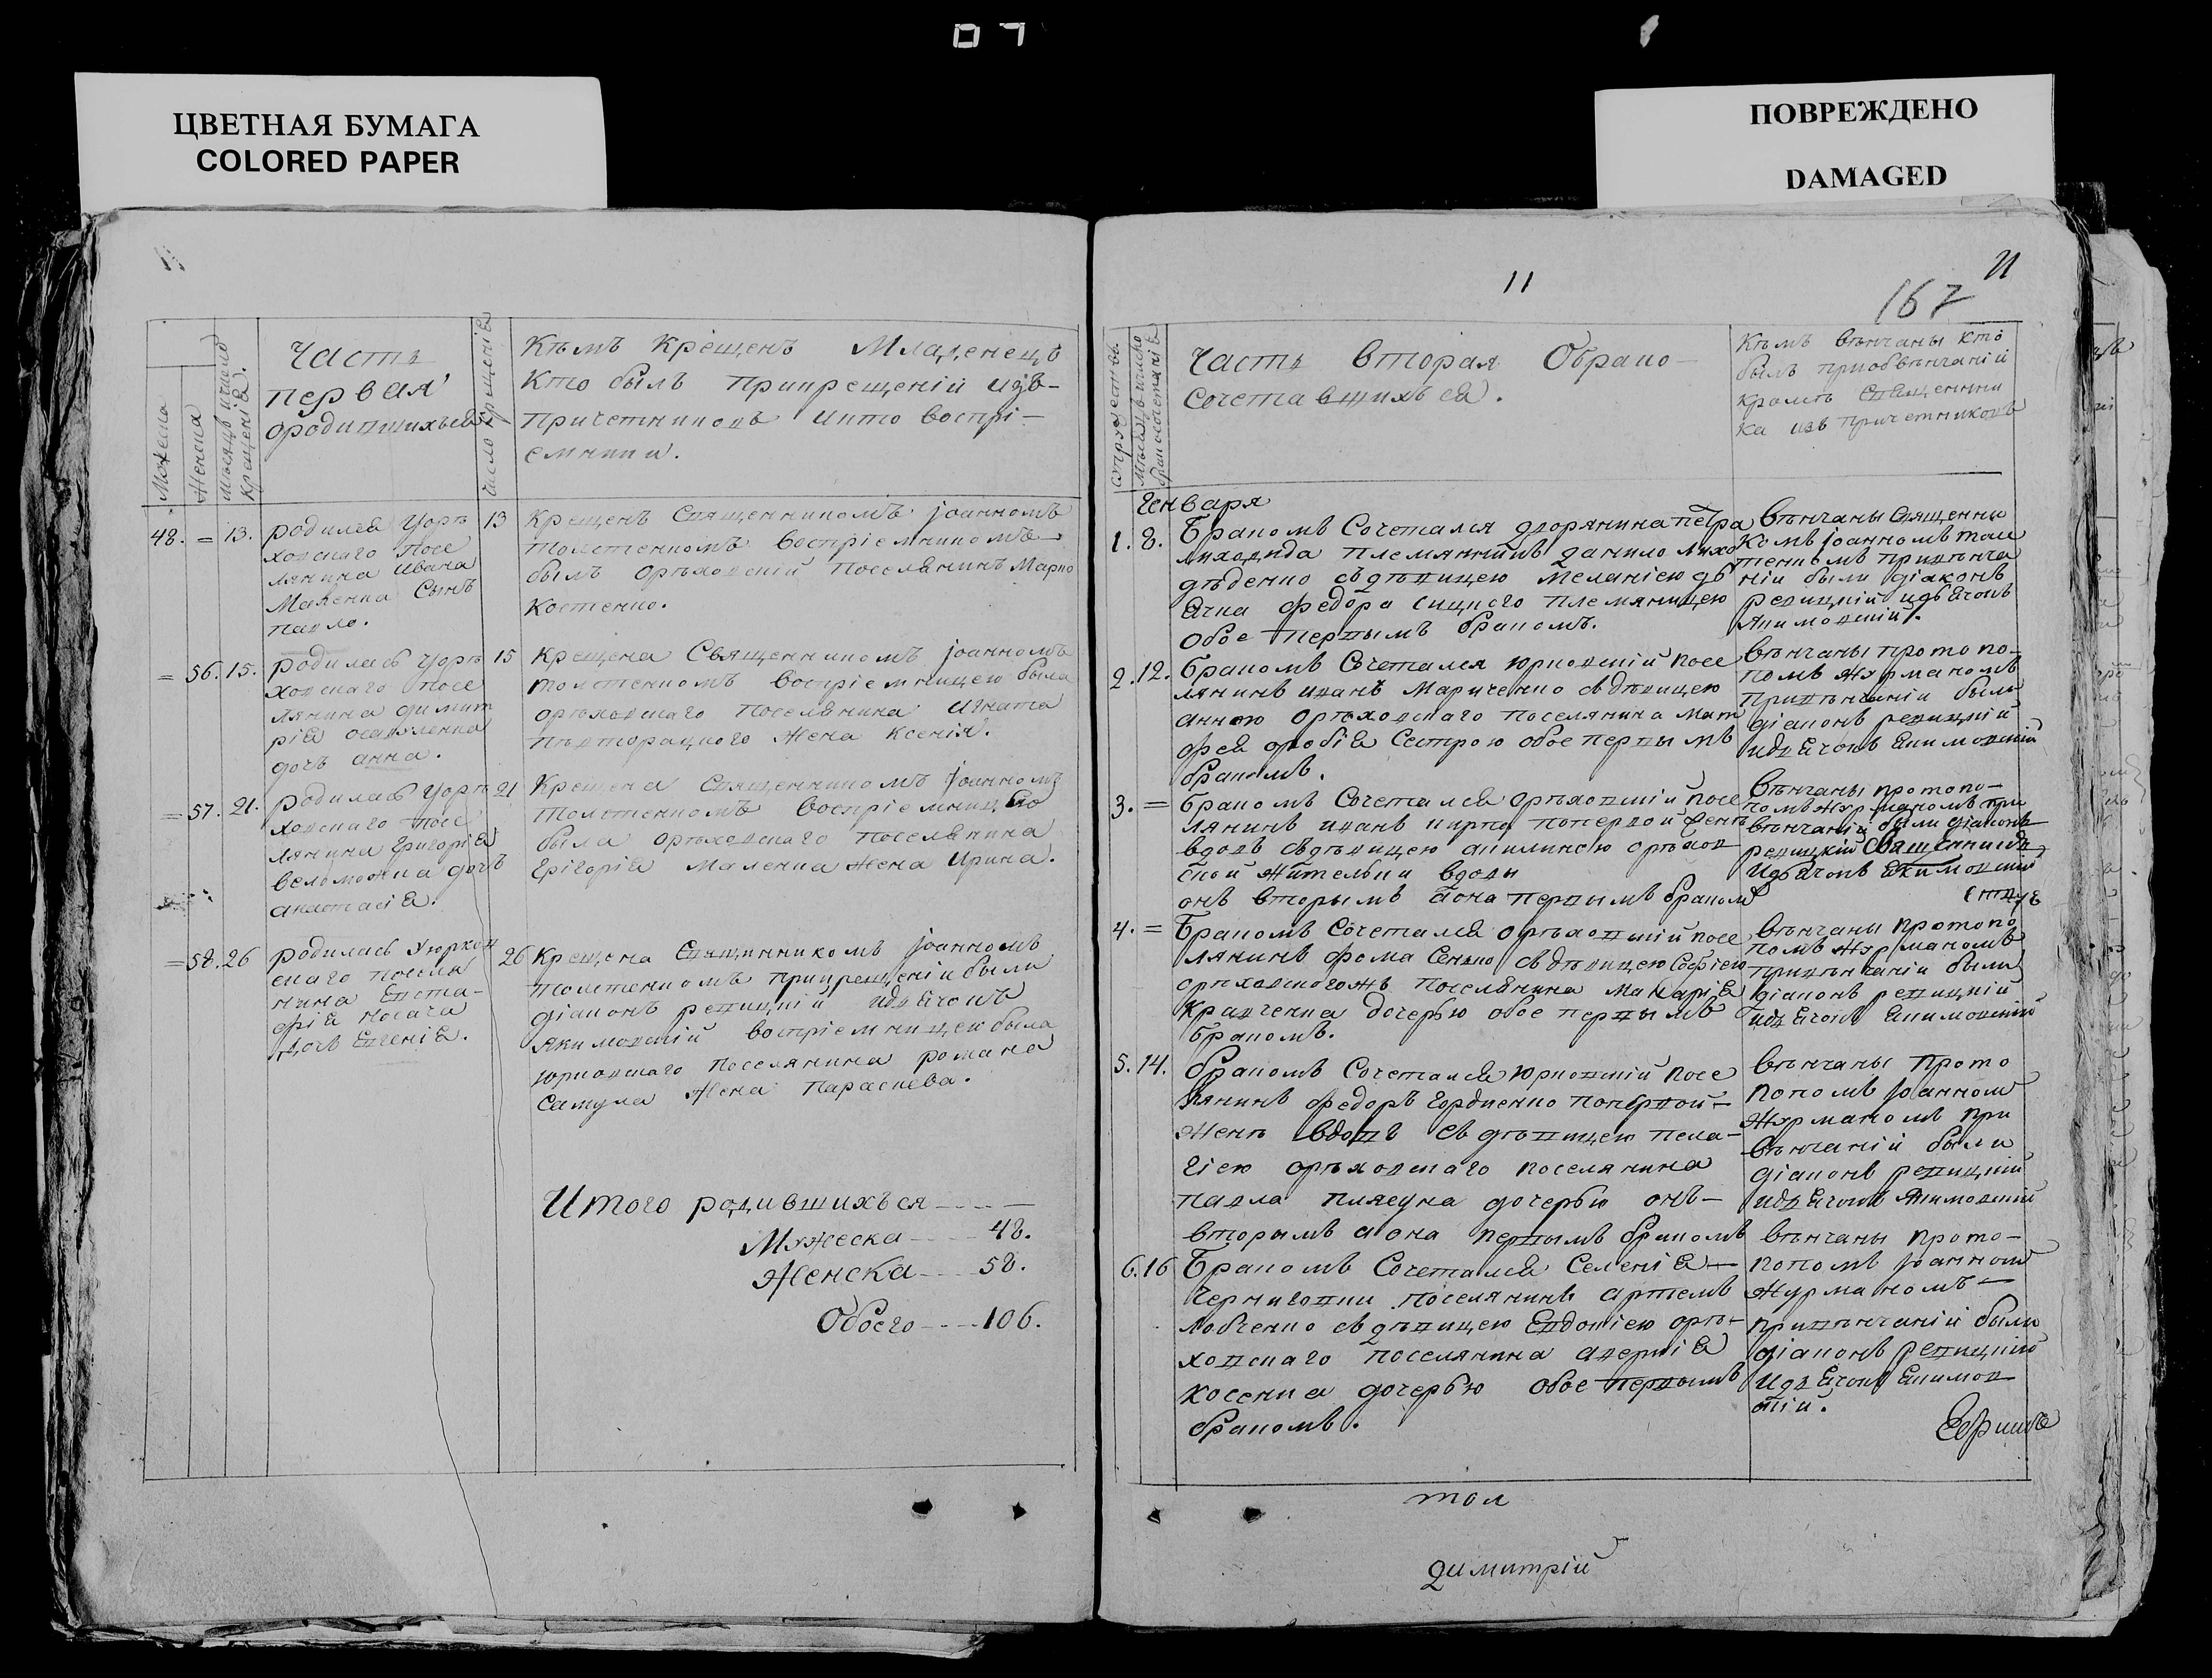 ЦВЕТНАЯ БУМАГА
COLORED PAPER
ПОВРЕЖДЕНО
DAMAGED
Мужеска
Женска
Мѣсяцъ и число крещенія.
Часть
первая
ородившихъся
число крещенія
Кѣмъ Крещенъ Младенецъ
Кто былъ Прикрещеніи изъ-
Причетниковъ икто воспрі-
емники.
48. = 13. родился Уорѣ 13
ховскаго посе
лянина Ивана
Маленка Сынъ
павло.
Крещенъ Священникомъ Іоанномъ
Толстенкомъ воспріемникомъ
былъ орѣховскій поселянинъ Марко
Костенко.
= 56. 15. родилась Уорѣ 15
ховскаго посе
лянина димит
рія
дочь анна.
Крещена Священникомъ Іоанномъ
толстенкомъ воспріемницею была
орѣховскаго поселянина Игната
жена Ксенія.
= 57. 21. родилась Уорѣ 21
ховскаго посе
лянина Григорія
веломожна дочь
анастасія.
Крещена Священникомъ Іоанномъ
толстенкомъ воспріемницею
была орѣховскаго поселянина
Григорія Маленка жена Ирина.
= 58. 26 родилась Уюрков 26
скаго поселя
нина Евста-
фія Носача
дочь Евгенія.
Крещена Священникомъ Іоанномъ
толстенкомъ прикрещеніи были
діаконъ ревицкій идьячокъ
Якимовскій воспріемницею была
юрковскаго поселянина романа
Самула Жена Параскева.
Итого родившихъся
Мужеска 48.
Женска 58.
Обоего 106.
11
11
167
Мѣсяцъ и число
браносочетанія
Часть вторая Обрано-
сочетавшихъся.
Кѣмъ вѣнчаны кто
былъ приобвѣнчаніи
кромѣ священни
ка изъ причетниковъ
Генваря
1. 8. Браномъ Сочетался дворянина пѣтра
племянникъ данило лихо
дѣденко съдѣвицею меланіею дь
ячка федора племяницею
обое первымъ браномъ.
Вѣнчаны священни
комъ Іоанномъ толс
тенкомъ привѣнча
ніи были діаконъ
ревицкій идьячокъ
Якимовскій.
2. 12. браномъ Сочетался юрковскій посе
лянинъ иванъ Мариченко съдѣвицею
анною орѣховскаго поселянина мат
фея Сестрою обое первымъ
браномъ.
вѣнчаны протопо-
помъ Журманомъ
привѣнчаніи были
діаконъ ревицкій
идьячокъ Якимовскій
3. = браномъ Сочетался орѣховскій посе
лянинъ иванъ кирпа поперцой женѣ
вдовъ съдѣвицею акилиною орѣхов
ской жительки вдовы
онъ вторымъ аона первымъ браномъ
вѣнчаны протопо-
помъ Журманомъ при
вѣнчаніи были діаконъ
ревицкій
идьячокъ Якимовскій
4. = Браномъ Сочетался орѣховскій посе
лянинъ фома Сенько съдѣвицею Софіею
орѣховскогожъ поселянина Макарія
Кравченка дочерью обое первымъ
браномъ.
вѣнчаны протопо
помъ Журманомъ
привѣнчаніи были
діаконъ ревицкій
идьячокъ Якимовскій
5. 14. браномъ Сочетался юрковскій посе
лянинъ федоръ Гордиенко попервой-
женѣ вдовъ съ дѣвицею пела-
гіею орѣховскаго поселянина
павла плясуна дочерью онъ-
вторымъ аона первымъ браномъ
вѣнчаны прото
попомъ Іоанномъ
Журманомъ при
вѣнчаніи были
діаконъ ревицкій
идьячокъ Якимовскій
6. 16 Браномъ Сочетался Селенія-
Чернигошки поселянинъ артемъ
лобченко съдѣвицею Евдокіею орѣ-
ховскаго поселянина аверкія
косенка дочерью обое первымъ
браномъ.
вѣнчаны прото-
попомъ Іоанномъ
Журманомъ-
привѣнчаніи были
діаконъ ревицкій
идьячокъ Якимов
скій.
тол
димитрій